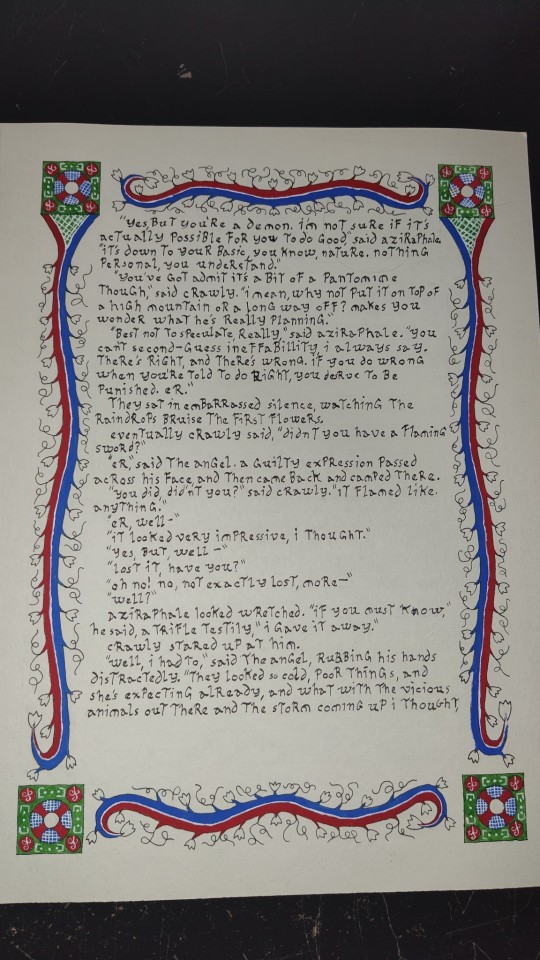 "Yes, But you're a demon. i'm not sure if it's
actually possible for you to do Good," said aziraphale.
"it's down to your Basic, you know, nature. nothing
personal, you understand."
"You've Got admit it's a Bit of a Pantomime
Though," said crawly. "i mean, why not put it on top of
a high mountain or a long way off? makes you
wonder what he's really planning."
"Best not to speculate, really," said aziraphale. "you
can't second-Guess ineffabillity, i always say.
There's Right, and There's wrong. if you do wrong
when you're told to do Right, you derve to Be
Punished. er."
They sat in embarrassed silence, watching The
Raindrops Bruise The First flowers.
eventually crawly said, "didn't you have a flaming
sword?"
"er," said The angel. a Guilty expression passed
across his face, and Then came Back and camped There.
"you did, didn't you?" said crawly. "it flamed like
anything."
"er, well-"
"it looked very impressive, i Thought."
"yes, But, well-"
"lost it, have you?"
"oh no! no, not exactly lost, more-"
"well?"
aziraphale looked wretched. "if you must know,"
he said, a trifle testily, "i Gave it away."
crawly stared up at him.
"well, i had to," said The angel, Rubbing his hands
distractedly. "They looked so cold, poor Things, and
she's expecting already, and what with The vicious
animals out There and The storm coming up i Thought,